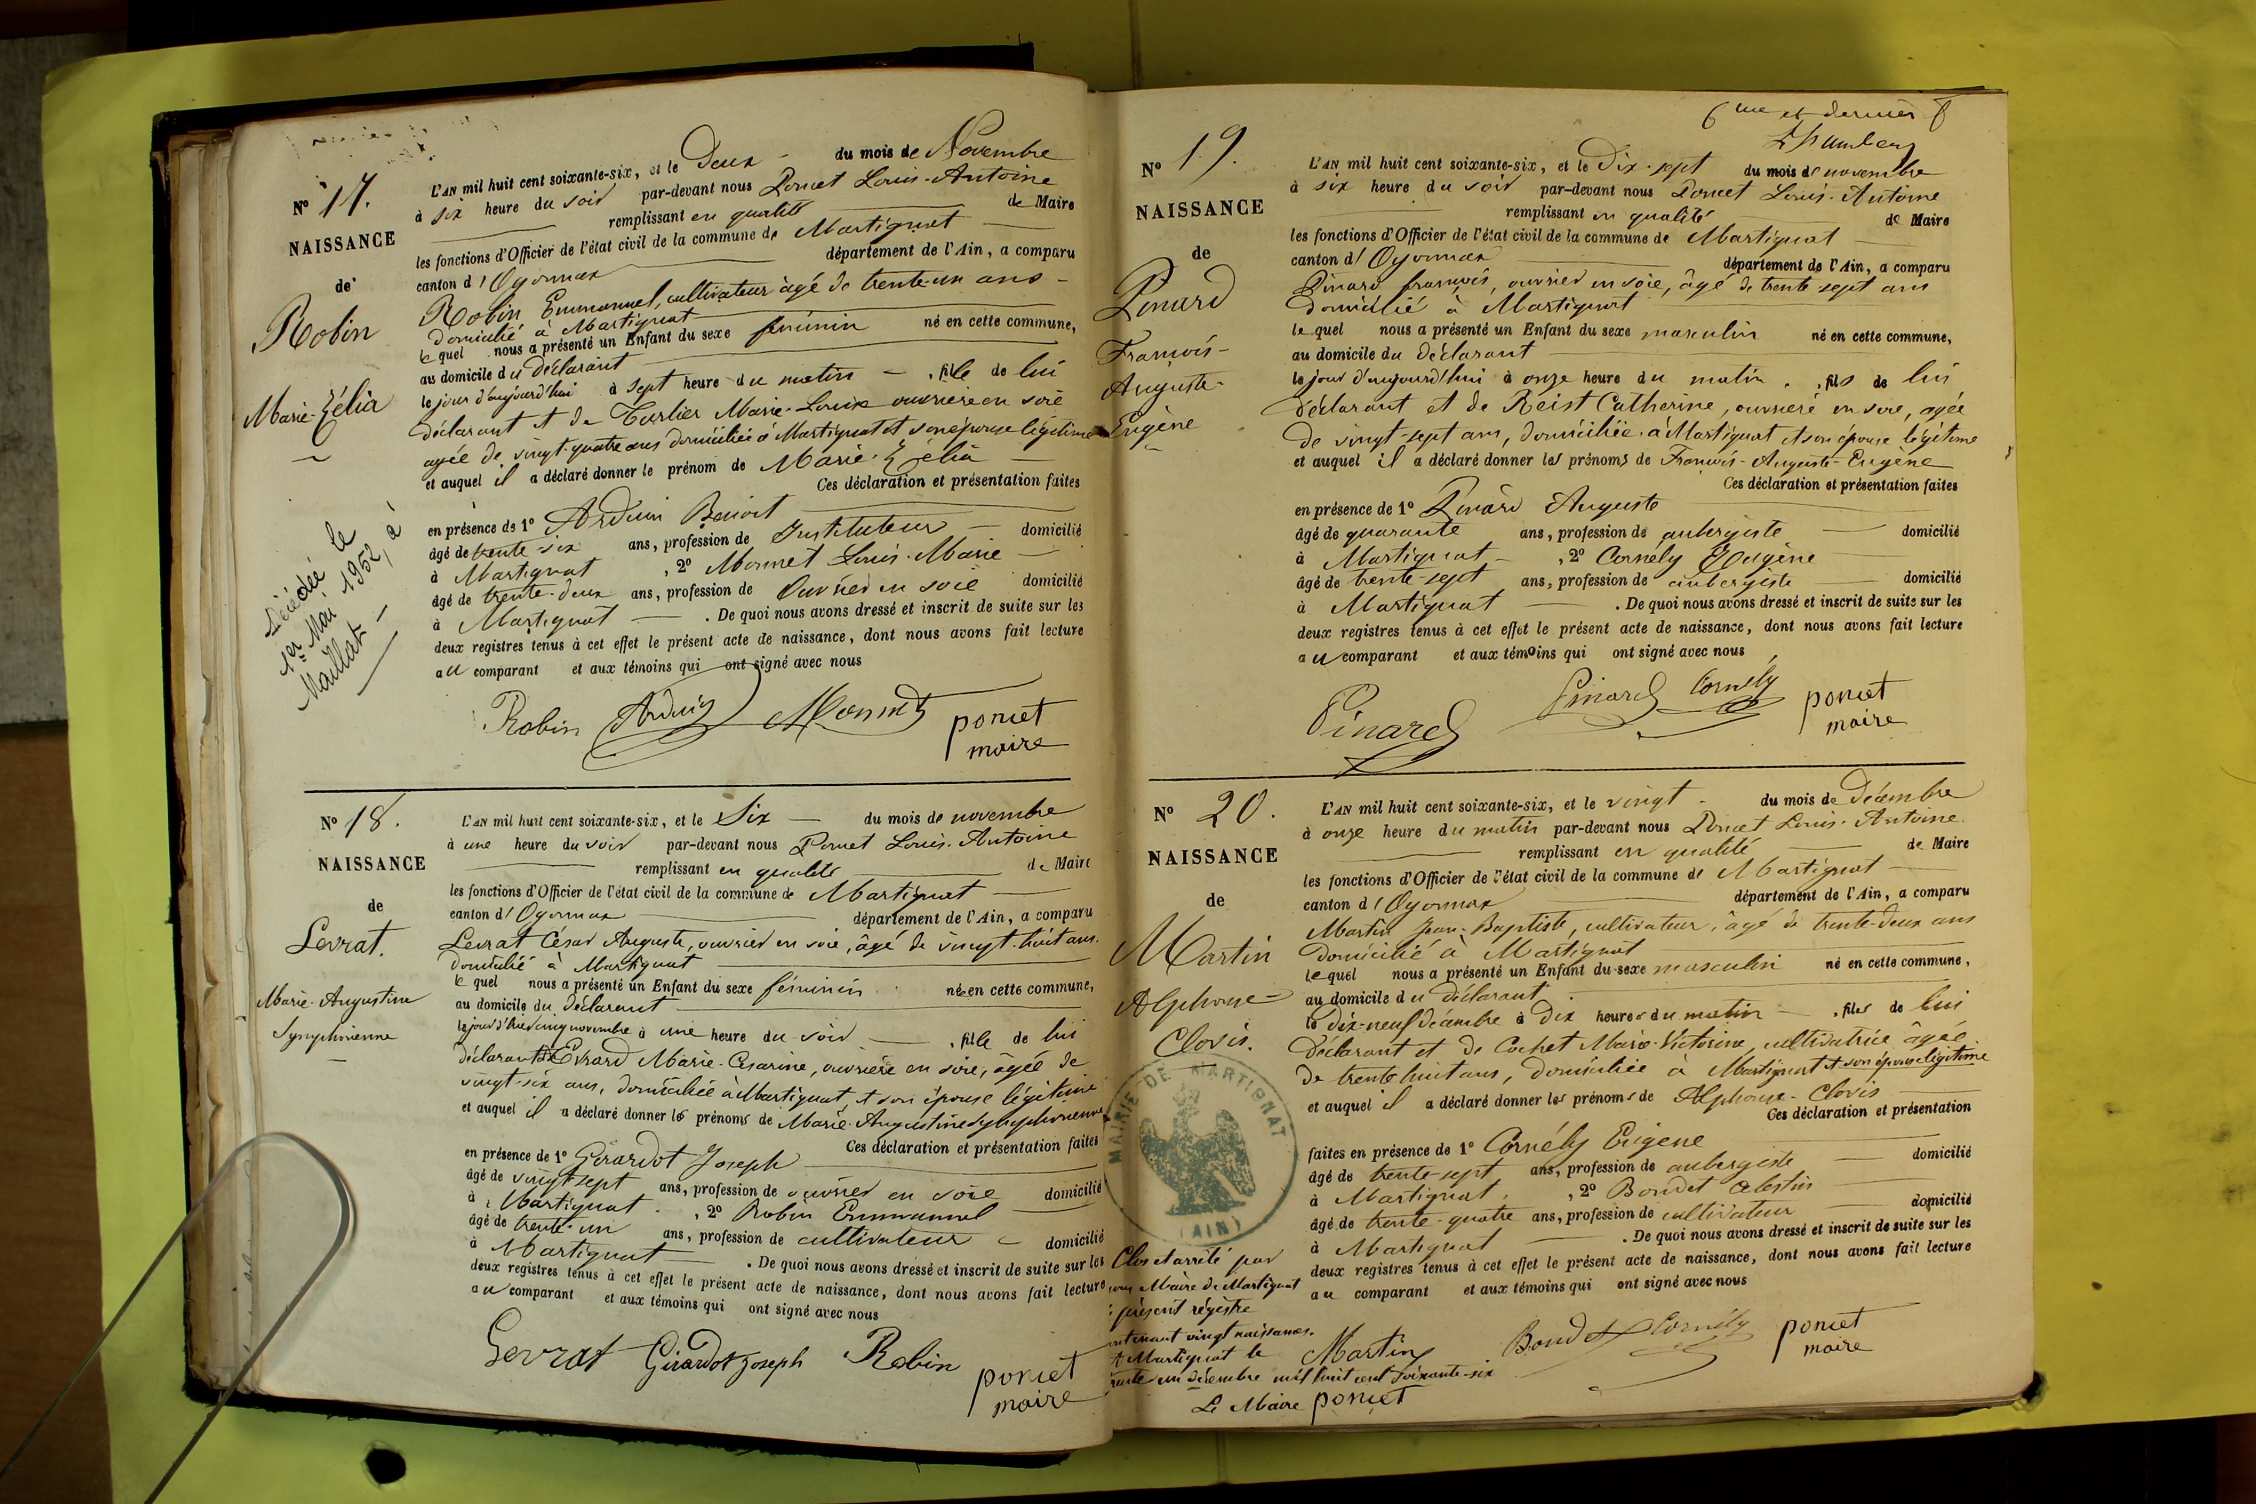 N° 17.
NAISSANCE
de
Robin
Marie-Zélia
Décédée le
1er Mai 1952, à
Maillat
L'AN mil huit cent soixante-six, et le Deux du mois de Novembre
à six heure du soir par-devant nous Poncet Louis-Antoine
remplissant en qualité de Maire
les fonctions d'Officier de l'état civil de la commune de Martignat
canton d'Oyonnax département de l'Ain, a comparu
Robin Emmanuel, cultivateur âgé de trente-un ans
domicilié à Martignat
lequel nous a présenté un Enfant du sexe féminin né en cette commune,
au domicile du déclarant
le jour d'aujourd'hui à sept heure du matin, fille de lui
déclarant et de Turlier Marie-Louise ouvrière en soie
agée de vingt-quatre ans domiciliée à Martignat et son épouse légitime
et auquel il a déclaré donner le prénom de Marie-Zélia
Ces déclaration et présentation faites
en présence de 1° Arduin Benoit
âgé de trente-six ans, profession de Instituteur domicilié
à Martignat, 2° Monnet Louis-Marie
âgé de trente-deux ans, profession de Ouvrier en soie domicilié
à Martignat. De quoi nous avons dressé et inscrit de suite sur les
deux registres tenus à cet effet le présent acte de naissance, dont nous avons fait lecture
au comparant et aux témoins qui ont signé avec nous
Robin Arduin Monnet poncet
maire
N° 18.
NAISSANCE
de
Levrat.
Marie-Augustine
Symphrienne
L'AN mil huit cent soixante-six, et le Six du mois de novembre
à une heure du soir par-devant nous Poncet Louis-Antoine
remplissant en qualité de Maire
les fonctions d'Officier de l'état civil de la commune de Martignat
canton d'Oyonnax département de l'Ain, a comparu
Levrat César Auguste, ouvrier en soie, âgé de vingt-huit ans.
domicilié à Martignat
le quel nous a présenté un Enfant du sexe féminin née en cette commune,
au domicile du déclarant
le jour d'hier cinq novembre à une heure du soir, fille de lui
déclarant et Evrard Marie-Césarine, ouvrière en soie, âgée de
vingt-six ans, domiciliée à Martignat, et son épouse légitime
et auquel il a déclaré donner les prénoms de Marie-Augustine Symphorienne
Ces déclaration et présentation faites
en présence de 1° Girardot Joseph
âgé de vingt-sept ans, profession de ouvrier en soie domicilié
à Martignat, 2° Robin Emmanuel
âgé de trente-un ans, profession de cultivateur domicilié
à Martignat. De quoi nous avons dressé et inscrit de suite sur les
deux registres tenus à cet effet le présent acte de naissance, dont nous avons fait lecture
au comparant et aux témoins qui ont signé avec nous
Levrat Girardot Joseph Robin poncet
maire
6me et dernier f
N° 19.
NAISSANCE
de
Pinard
François-
Auguste-
Eugène
L'AN mil huit cent soixante-six, et le Dix-sept du mois de novembre
à six heure du soir par-devant nous Poncet Louis-Antoine
remplissant en qualité de Maire
les fonctions d'Officier de l'état civil de la commune de Martignat
canton d'Oyonnax département de l'Ain, a comparu
Pinard françois, ouvrier en soie, âgé de trente sept ans
domicilié à Martignat
le quel nous a présenté un Enfant du sexe masculin né en cette commune,
au domicile du déclarant
le jour d'aujourd'hui à onze heure du matin, fils de lui
déclarant et de Reist Catherine, ouvrière en soie, agée
de vingt-sept ans, domiciliée à Martignat et son épouse légitime
et auquel il a déclaré donner les prénoms de François-Auguste-Eugène
Ces déclaration et présentation faites
en présence de 1° Pinard Auguste
âgé de quarante ans, profession de aubergiste domicilié
à Martignat, 2° Cornély Eugène
âgé de trente-sept ans, profession de aubergiste domicilié
à Martignat. De quoi nous avons dressé et inscrit de suite sur les
deux registres tenus à cet effet le présent acte de naissance, dont nous avons fait lecture
au comparant et aux témoins qui ont signé avec nous
Pinard Pinard Cornély poncet
maire
N° 20.
NAISSANCE
de
Martin
Alphonse-
Clovis.
MAIRIE DE MARTIGNAT
(AIN)
L'AN mil huit cent soixante-six, et le vingt du mois de Décembre
à onze heure du matin par-devant nous Poncet Louis-Antoine
remplissant en qualité de Maire
les fonctions d'Officier de l'état civil de la commune de Martignat
canton d'Oyonnax département de l'Ain, a comparu
Martin Jean-Baptiste, cultivateur, âgé de trente-deux ans
domicilié à Martignat
lequel nous a présenté un Enfant du sexe masculin né en cette commune,
au domicile du déclarant
le dix-neuf décembre à dix heures du matin, fils de lui
déclarant et de Cochet Marie-Victorine, cultivatrice âgée
de trente huit ans, domiciliée à Martignat et son épouse légitime
et auquel il a déclaré donner les prénoms de Alphonse-Clovis
Ces déclaration et présentation
faites en présence de 1° Cornély Eugene
âgé de trente-sept ans, profession de aubergiste domicilié
à Martignat, 2° Bondet Celestin
âgé de trente-quatre ans, profession de cultivateur domicilié
à Martignat. De quoi nous avons dressé et inscrit de suite sur les
deux registres tenus à cet effet le présent acte de naissance, dont nous avons fait lecture
au comparant et aux témoins qui ont signé avec nous
Martin Bondet Cornély poncet
maire
Clos et arrêté par
nous Maire de Martignat
présent régistre
contenant vingt naissances.
A Martignat le
trente un décembre mil huit cent soixante-six
Le Maire poncet